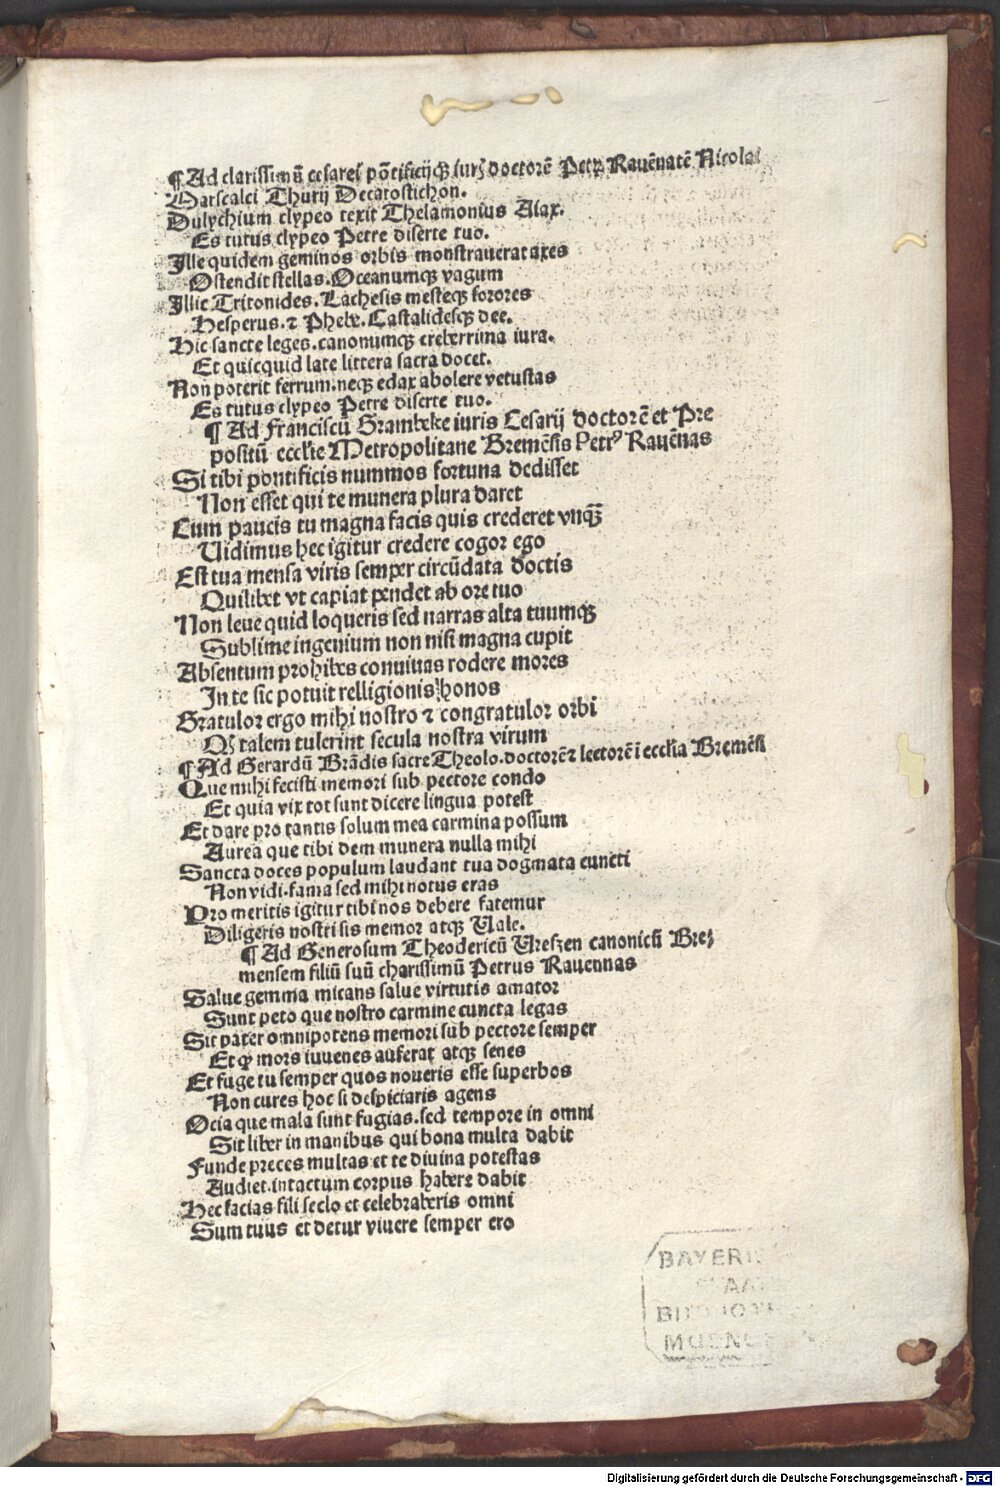 ¶Ad clarissimū cesarei pōtificijqꝫ iurꝭ doctorē Petrꝫ Rauēnatē Nicolai
Marscalci Thurij Decatostichon.
Dulychium clypeo texit Thelamonius Aiax.
Es tutus clypeo Petre diserte tuo.
Ille quidem geminos orbis monstrauerat axes
Ostendit stellas. Oceanumqꝫ vagum
Illic Tritonides. Lachesis mesteqꝫ sorores
Hesperus. ⁊ Phebe. Castalidesqꝫ dee.
Hic sancte leges. canonumqꝫ creberrima iura.
Et quicquid late littera sacra docet.
Non poterit ferrum. neqꝫ edax abolere vetustas
Es tutus clypeo Petre diserte tuo.
¶ Ad Franciscū Grambeke iuris Cesarij doctorē et Pre
positū ecclie Metropolitane Bremēsis Petrꝰ Rauēnas
Si tibi pontificis nummos fortuna dedisset
Non esset qui te munera plura daret
Cum paucis tu magna facis quis crederet vnqꝫ
Uidimus hec igitur credere cogor ego
Est tua mensa viris semper circūdata doctis
Quilibet vt capiat pendet ab ore tuo
Non leue quid loqueris sed narras alta tuumqꝫ
Sublime ingenium non nisi magna cupit
Absentum prohibes conuiuas rodere mores
In te sic potuit relligionis honos
Gratulor ergo mihi nostro ⁊ congratulor orbi
Qꝫ talem tulerint secula nostra virum
¶Ad Gerardū Brādis sacre Theolo. doctorē⁊ lectorē i ecclia Bremēsi
Que mihi fecisti memori sub pectore condo
Et quia vix tot sunt dicere lingua potest
Et dare pro tantis solum mea carmina possum
Aurea que tibi dem munera nulla mihi
Sancta doces populum laudant tua dogmata cuncti
Non vidi. fama sed mihi notus eras
Pro meritis igitur tibi nos debere fatemur
Diligeris nostri sis memor atqꝫ Uale.
¶ Ad Generosum Theodericū Ureszen canonicū Bre⸗
mensem filiū suū charissimū Petrus Rauennas
Salue gemma micans salue virtutis amator
Sunt peto que nostro carmine cuncta legas
Sit pater omnipotens memori sub pectore semper
Et ꝙ mors iuuenes auferat atqꝫ senes
Et fuge tu semper quos noueris esse superbos
Non cures hoc si despiciaris agens
Ocia que mala sunt fugias. sed tempore in omni
Sit liber in manibus qui bona multa dabit
Funde preces multas et te diuina potestas
Audiet. intactum corpus habere dabit
Hec facias fili seclo et celebraberis omni
Sum tuus et detur viuere semper ero
BAYERI
STAA
BIBLIOTH
MUENC
Digitalisierung gefördert durch die Deutsche Forschungsgemeinschaft - DFG